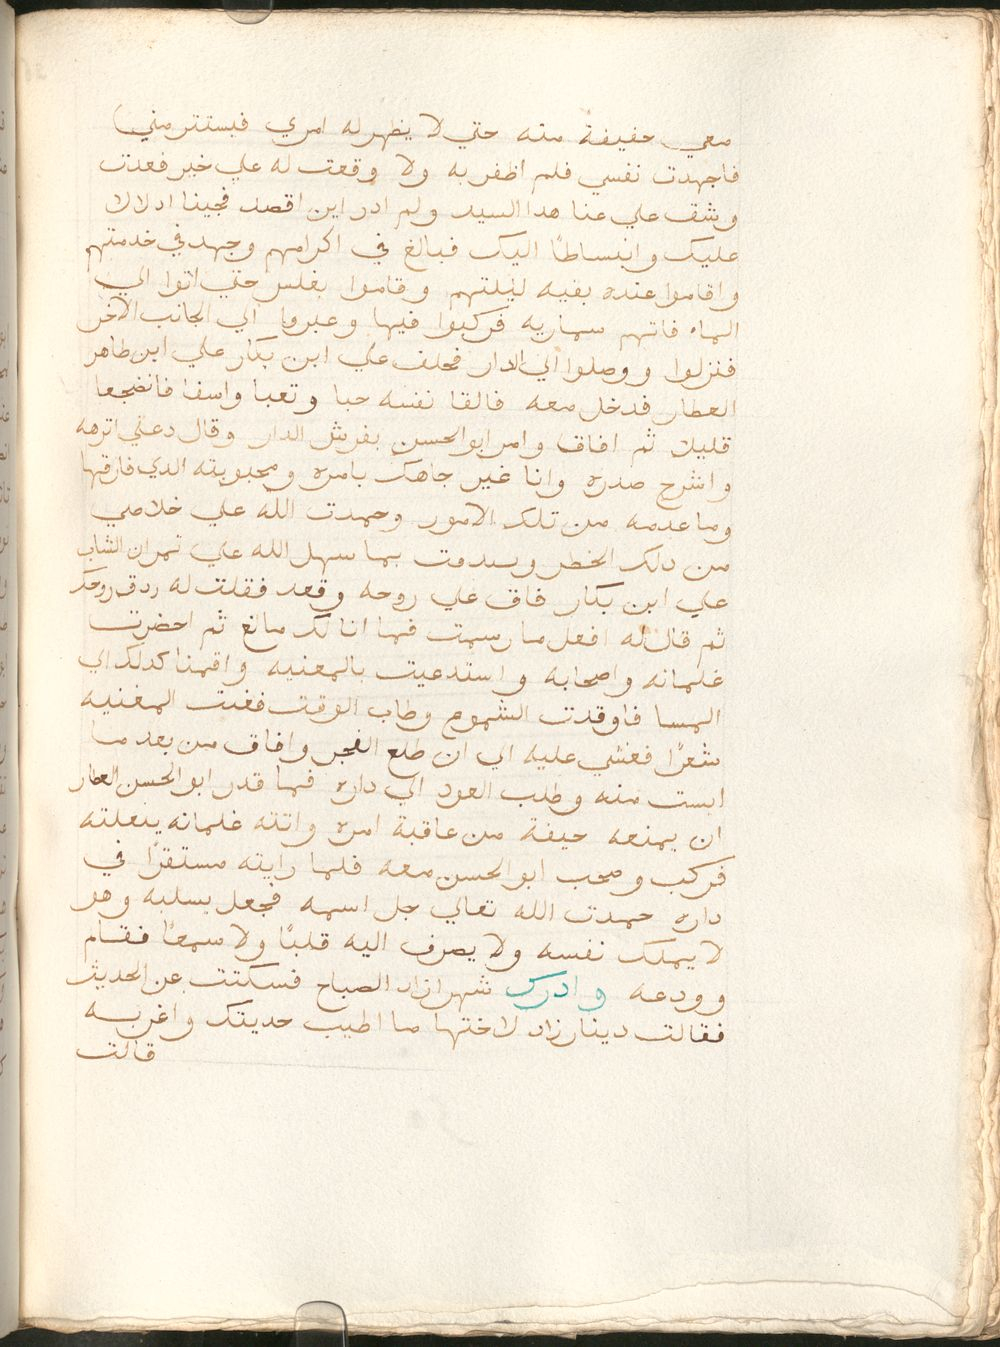 معي حفيفة منه حتي لا يظهر له امري فيستتر مني
فاجهدت نفسي فلم اظفر به ولا وقعت له علي خبر فعدت
وشق علي عنا هدا السيد ولم ادر اين اقصد فجينا ادلالا
عليك وانبساطًا اليك فبالغ في اكرامهم وجهد في خدمتهم
واقاموا عنده بقيه ليلتهم وقاموا بغلس حتي اتوا الي
الماء فاتهم سماريه فركبوا فيها وعبروا الي الجانب الاخر
فنزلوا ووصلوا الي الدار فحلف علي ابن بكار علي ابن طاهر
العطار فدخل معه فالقا نفسه حبا وتعبا واسفا فانضجعا
قليلا ثم افاق وامر ابو الحسن بفرش الدار وقال دعني اترهه
واشرح صدره وانا غير جاهك بامره ومحبوبته الدي فارقها
وما عدمه من تلك الامور وحمدت الله علي خلاصي
من دلك الخطر وسدمت بما سهل الله علي تمران الشاب
علي ابن بكار فاق علي روحه وقعد فقلت له ردق روحك
ثم قال له افعل ما رسمت فما انا لك مانع ثم احضرت
غلمانه واصحابه واستدعيت بالمغنيه واقمنا كدلك الي
المسا فاوقدت الشموع وطاب الوقت فغنت المغنيه
شعرًا فغشي عليه الي ان طلع الفجر وافاق من بعد ما
ايست منه وطلب العود الي داره فما قدر ابو الحسن العطار
ان يمنعه حيفة من عاقبة امره واتته غلمانه ببغلته
فركب وصحب ابو الحسن معه فلما رايته مستقرًا في
داره حمدت الله تعالي جل اسمه فجعل يسلبه وهو
لا يملك نفسه ولا يصرف اليه قلبًا ولا سمعًا فقام
وودعه وادرك شهرازاد الصباح فسكتت عن الحديث
فقالت دينارزاد لاختها ما اطيب حديتك واغربه
قالت